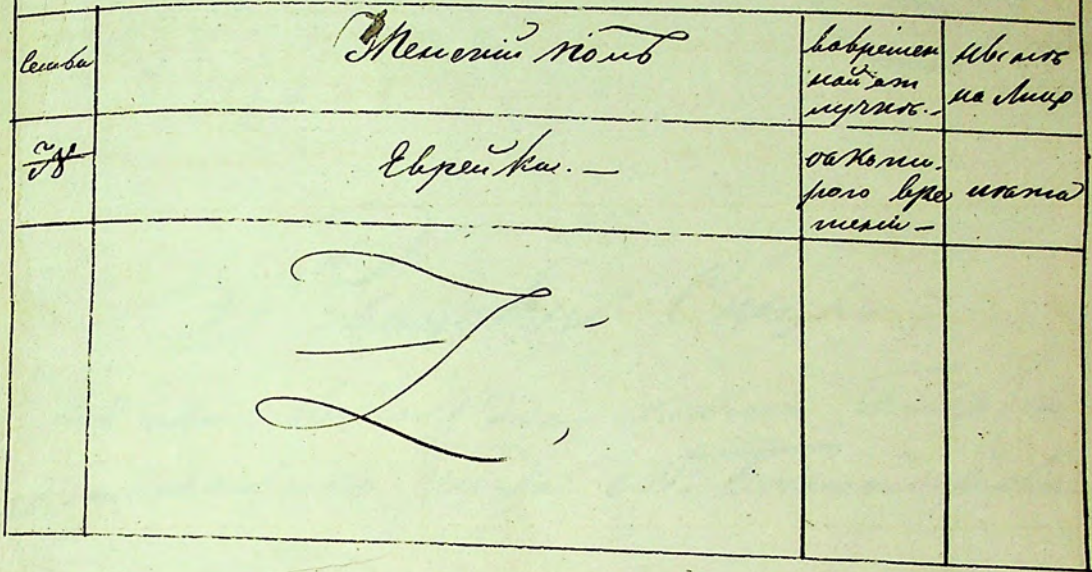 Семьи
Женский полъ
вовремен
ной от
лучкѣ. -
лѣтъ
на лицо
№
Еврейки. -
съ котo
рого вре
мени -
лѣта